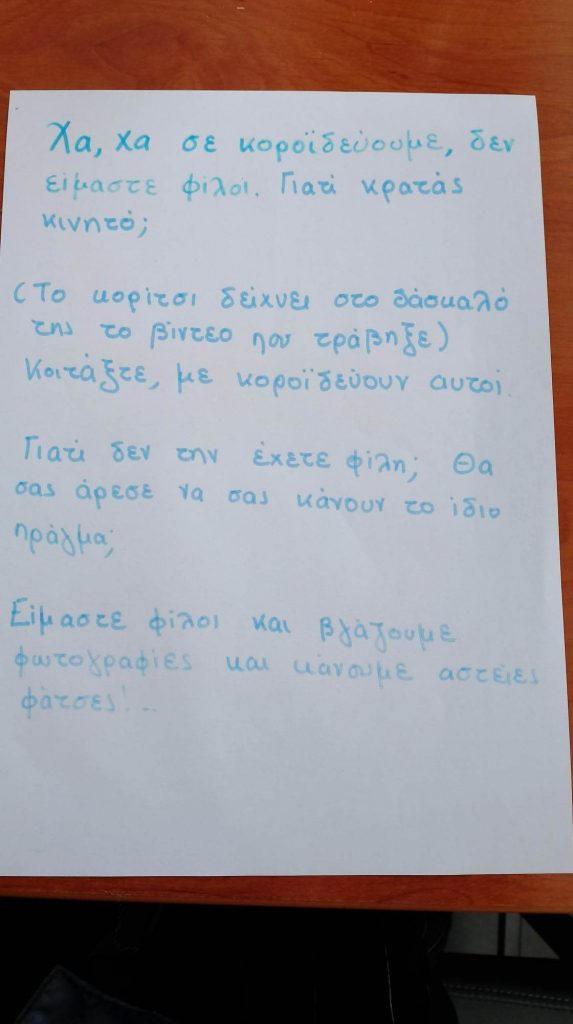 Χα, χα σε κοροϊδεύουμε, δεν
είμαστε φίλοι. Γιατί κρατάς
κινητό;
(Το κορίτσι δείχνει στο δάσκαλό
της το βίντεο που τράβηξε)
Κοιτάξτε, με κοροϊδεύουν αυτοί.
Γιατί δεν την έχετε φίλη; Θα
σας άρεσε να σας κάνουν το ίδιο
πράγμα;
Είμαστε φίλοι και βγάζουμε
φωτογραφίες και κάνουμε αστείες
φάτσες!...